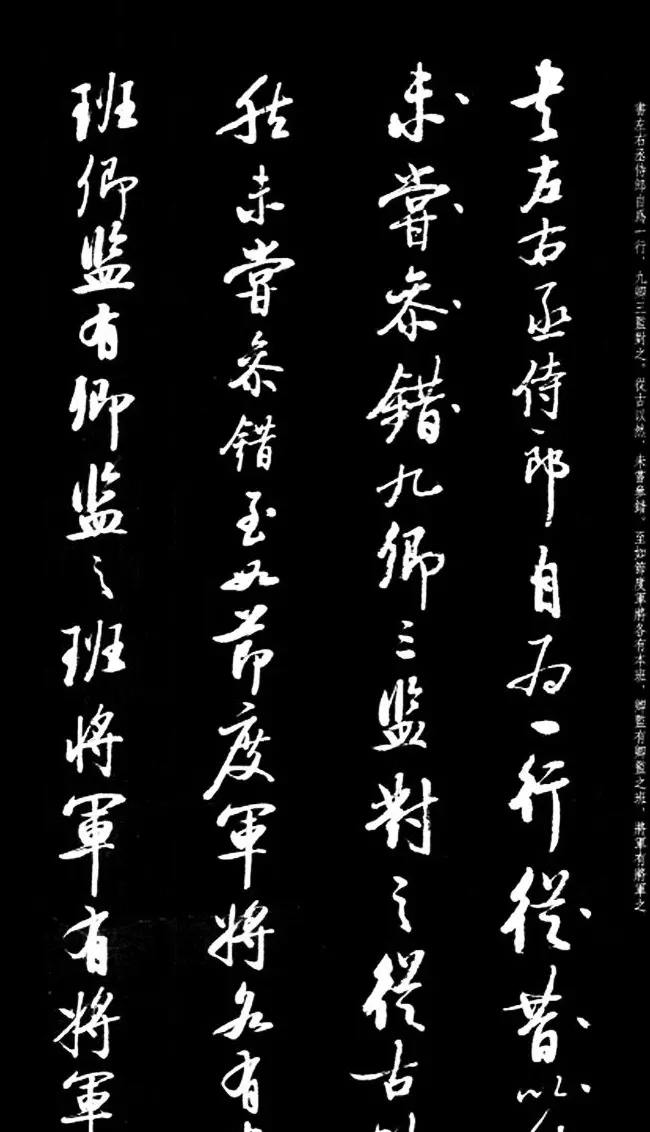 書左右丞侍郎自爲一行，九卿三監對之。從古以然，未嘗參錯。至如節度軍將各有本班，卿監有卿監之班，將軍有將軍之
書左右丞侍郎自為一行從昔以
未嘗參錯九卿三監對之從古
然未嘗參錯至如節度軍將各有
班卿監有卿監之班將軍有將軍